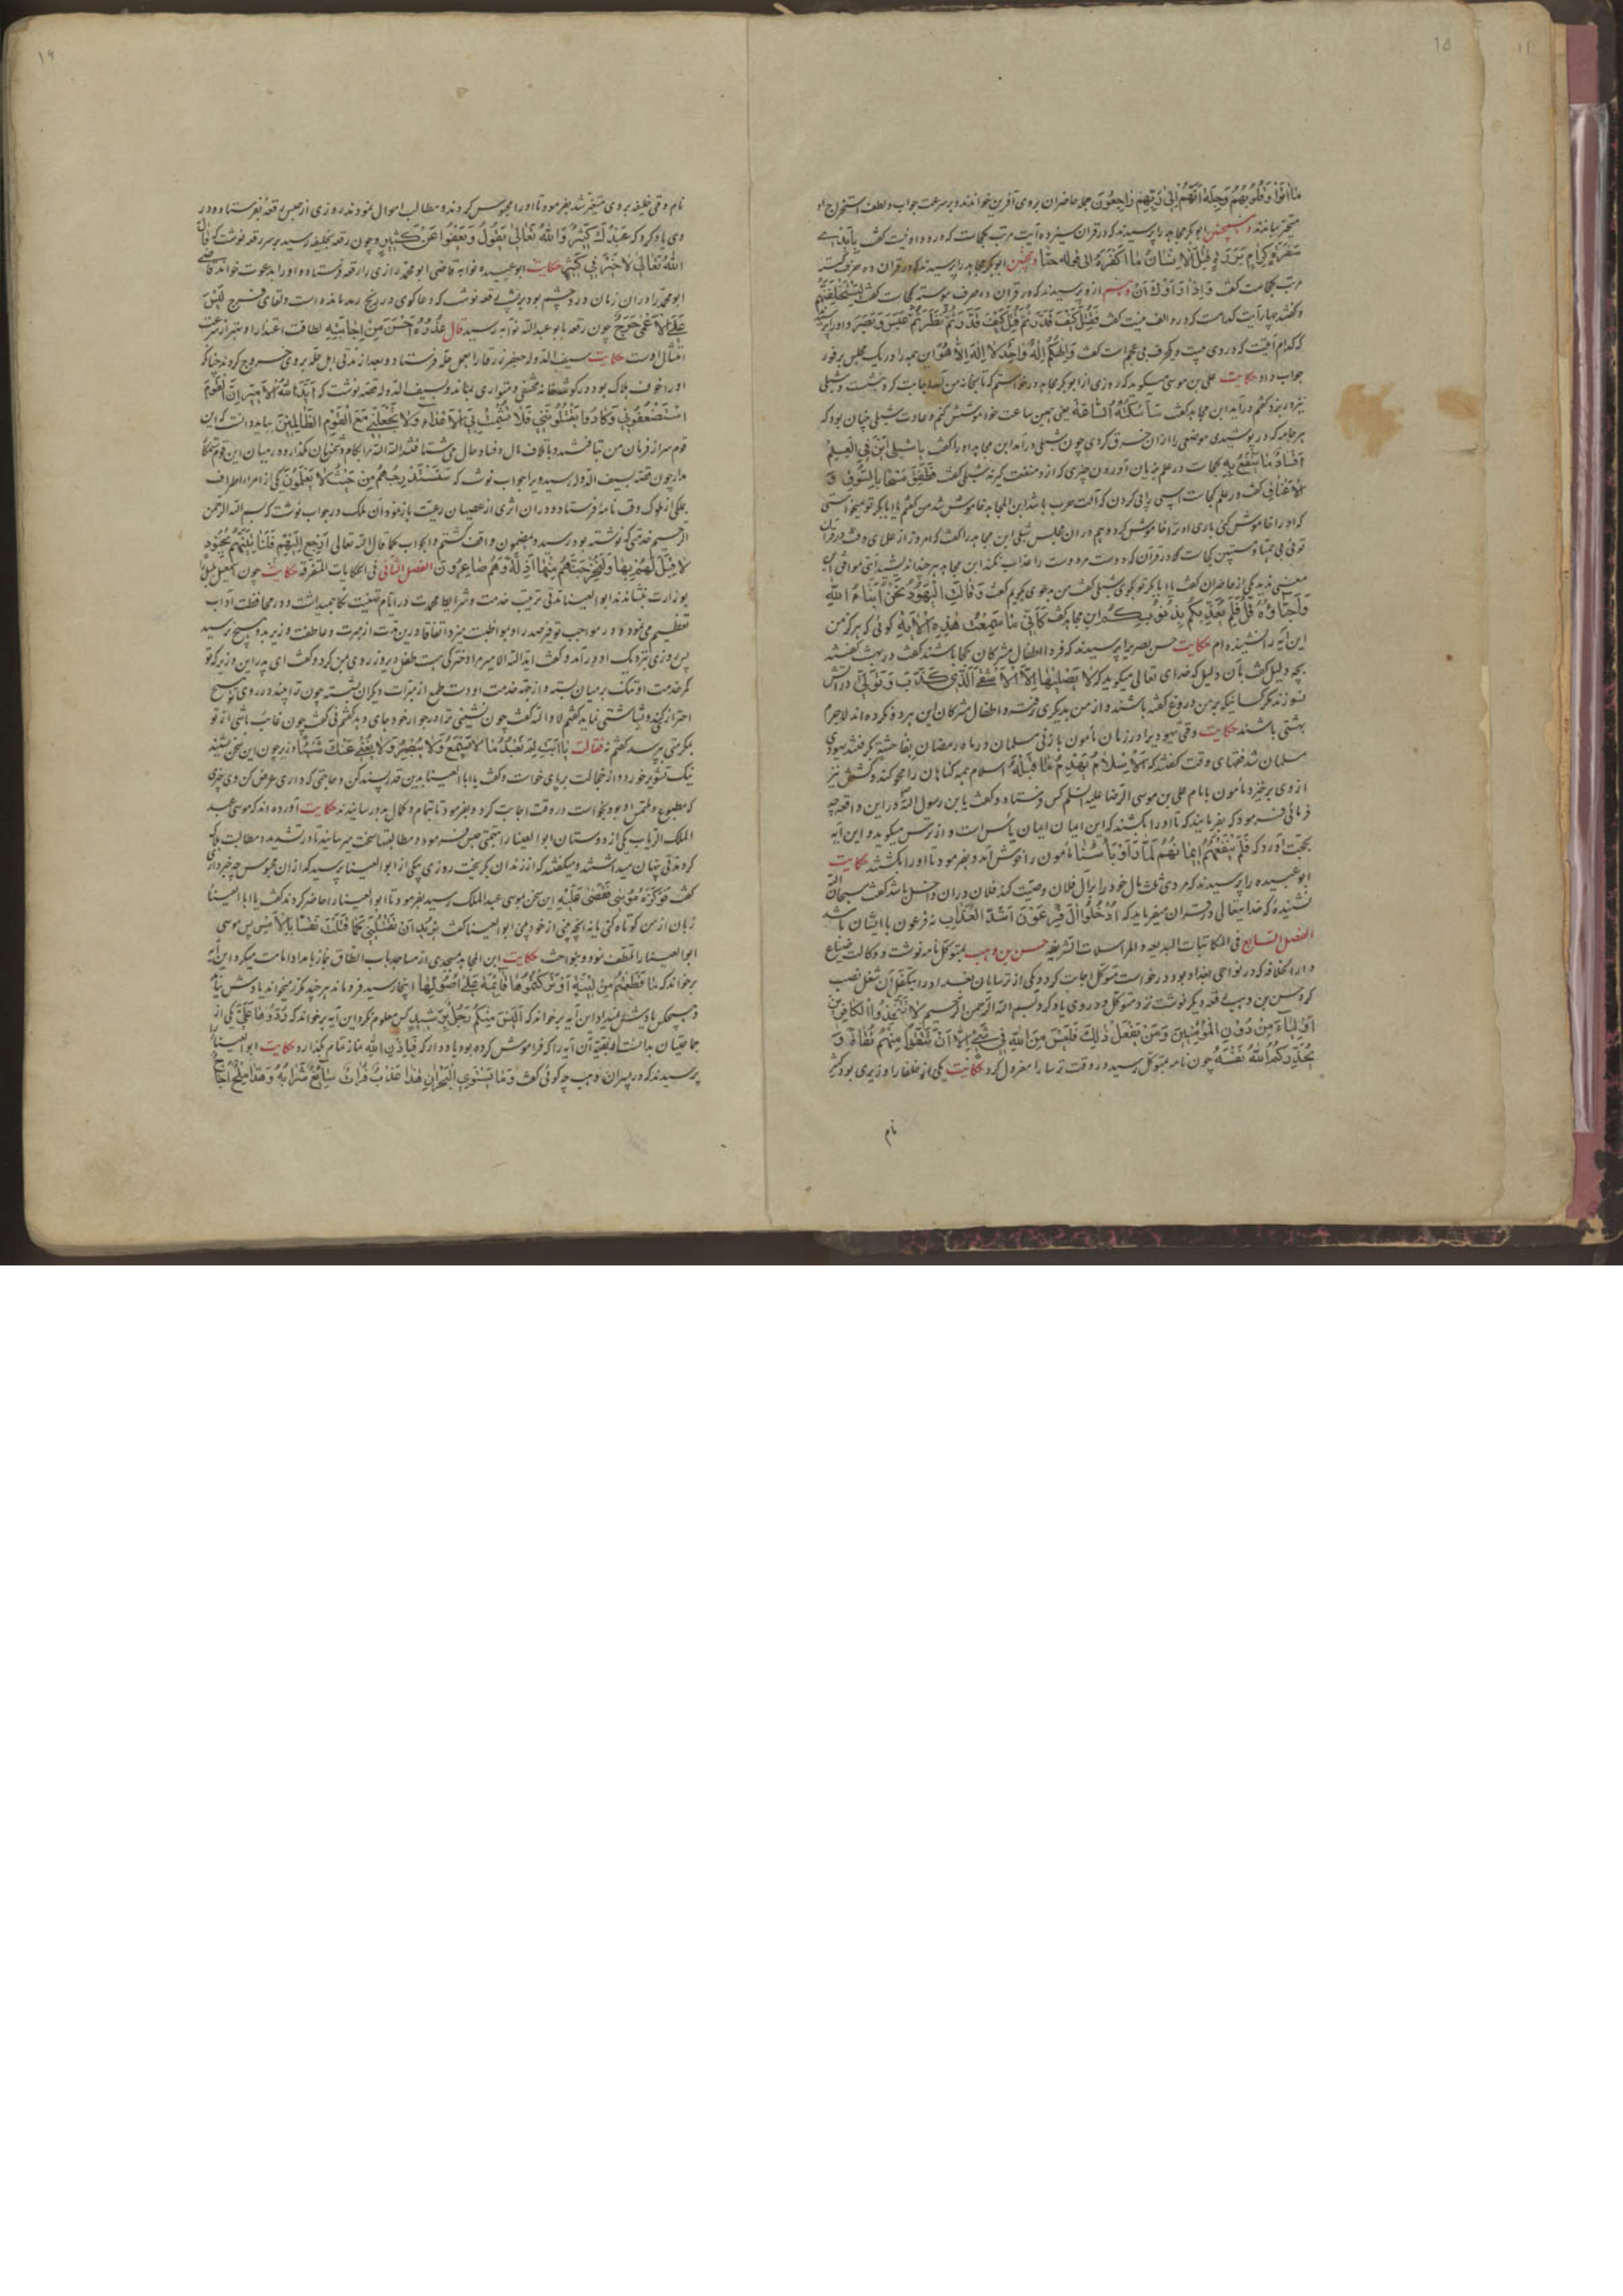 ۱۵
ما اتوا وقلوبهم وجلة انهم الی ربهم راجعون جمله حاضران بروی آفرین خواندند و بر سرعت جواب و لطف استخراج او
متحیر بماندند همچنین ابوبکر مجاهد را پرسیدند که در قران سیزده آیت مرتب کجاست که درو واو نیست گفت بایدی
سفرة کرام بررة قتل الانسان ما اکفره الی قوله حبا و همچنین ابوبکر مجاهد را پرسیدند که در قران ده حرف
مرتب کجاست گفت و اذ ازو پرسیدند که در قران ده حرف پیوسته کجاست گفت لیستخلفنهم
و گفتند چهار آیت کدامست که درو الف نیست گفت فقتل کیف قدر ثم قتل کیف قدر ثم نظر ثم عبس وبسر و او را پرسیدند
که کدام آیتست که در وی و یک حرف بی عجم است گفت والهکم اله واحد لا اله الا هو این همه را در یک مجلس بر فور
جواب داد حکایت علی بن موسی میگوید که روزی از ابوبکر مجاهد درخواستم که تا بخانه من آید اجابت کرد و شبلی
نیز در آمد ابن مجاهد گفت ساسکته الساعة یعنی همین ساعت خواموشش کنم و عادت شبلی چنان بود که
هر جامه که در پوشیدی موضعی را ازان خرق کردی چون شبلی در آمد ابن مجاهد او را گفت یا شبلی این فی العلم
افساد ما ینتفع به کجاست در علم بزیان آوردن چیزی که ازو منفعت گیرند شبلی گفت فطفق مسحا بالسوق و
الاعناق گفت در علم کجاست اسپی را پی کردن که آلت حرب باشد ابن المجاهد خاموش شد من گفتم یا ابابکر تو میخواستی
که او را خاموش کنی باری او ترا خاموش کرد و هم دران مجلس شبلی ابن مجاهد را گفت که امروز از علمای وقت در قران
توئی بی همتا کجاست در قران که دوست مر دوست را عذاب نکند ابن مجاهد هر چند اندیشید آیتی موافق این
معنی ندید یکی از حاضران گفت یا ابابکر تو بگوی شبلی گفت من بگویم گفت وقالت الیهود نحن ابناء الله
واحباؤه قل فلم یعذبکم بذنوبکم ابن مجاهد گفت کانی ما سمعت هذه الآیة گوئی که هرگز من
این آیه را نشنیده‌ام حکایت حسن بصری را پرسیدند که فردا اطفال مشرکان کجا باشند گفت در بهشت گفتند
بچه دلیل گفت بآن دلیل که خدای تعالی میگوید که لا یصلیها الا الاشقی الذی کذب وتولی در آتش
نسوزند مگر کسانیکه بر من دروغ گفته باشند و از من بدیگری رفته و اطفال مشرکان این هر دو نکرده‌اند لاجرم
بهشتی باشند حکایت وقتی یهودیرا در زمان مأمون با زنی مسلمان در ماه رمضان بفاحشه بگرفتند یهودی
مسلمان شد فقهای وقت گفتند که الاسلام یهدم ما قبله اسلام همه گناهان را محو کند و کشتن نیز
از وی برخیزد مأمون بامام علی بن موسی الرضا علیه السلم کس فرستاد و گفت یابن رسول الله در این واقعه چه
فرمائی فرمود که بفرمایید که تا او را بکشند که این ایمان ایمان یأس است و از ترس میگوید و این آیه
بحجت آورد که فلم ینفعهم ایمانهم لما راوا باسنا مأمون را خوش آمد و بفرمود تا او را بکشتند حکایت
ابو عبیده را پرسیدند که مردی ثلث مال خود را برآل فلان وصیت کند فلان دران داخل باشد گفت سبحان الله
نشنیدهٔ که خدا یتعالی در قران میفرماید که ادخلوا آل فرعون اشد العذاب نه فرعون با ایشان باشد
الفصل السابع فی المکاتبات البدیعه و المراسلات الشریفه حسن بن وهب بمتوکل نامه نوشت و وکالت ضیاع
دار الخلافه که در نواحی بغداد بود درخواست متوکل اجابت کرد و یکی از ترسایان بغداد را بتکفل آن شغل نصب
کرد حسن بن وهب رقعه دیگر نوشت نزد متوکل و در وی یاد کرد بسم الله الرحمن الرحیم لا تتخذوا الکافرین
اولیاء من دون المؤمنین ومن یفعل ذلک فلیس من الله فی شیء الا ان تتقوا منهم تقاة و
یحذرکم الله نفسه چون نامه بمتوکل رسید در وقت ترسا را معزول کرد حکایت یکی از خلفا را وزیری بود کثیر
نام
۱۶
نام وقتی خلیفه بروی متغیر شد بفرمود تا او را محبوس کردند و مطالب اموال نمودند روزی از حبس رقعه بفرستاد و در
وی یاد کرد که عبدک کثیر والله تعالی یقول ویعفوا عن کثیر چون رقعه بخلیفه رسید بر سر رقعه نوشت که قال
الله تعالی لا خیر فی کثیر حکایت ابو عبید قاضی ابو محمد رازی را رقعه فرستاد و او را بدعوت خواند قاضی
ابو محمد را دران زمان درد چشم بود بر پشت رقعه نوشت که دعا گوی در رنج رمد مانده است و تعالی فرج لیس
علی الاعمی حرج چون رقعه بابو عبدالله رسید قال عذره احسن من اجابته لطافت اعتذار او بهتر از سرعت
امتثال اوست حکایت سیف الدوله جعفر را بعمل حله فرستاد و بعد از مدتی اهل حله بروی خروج کردند چنانکه
او را خوف هلاک بود در گوشه خانه مختفی و متواری بماند و بسیف الدوله قصه نوشت که اید الله الامیر ان القوم
استضعفونی وکادوا یقتلوننی فلا تشمت بی الاعداء ولا تجعلنی مع القوم الظالمین بباید دانست که این
قوم سر از فرمان من بتافتند و باتلاف مال و فساد حال می شتافتند الله الله مرا بکام دشمنان مگذار و در میان این قوم ستمکار
مدار چون قصه بسیف الدوله رسید ویرا جواب نوشت که سنستدرجهم من حیث لا یعلمون یکی از امراء اطراف
بملکی از ملوک وقت نامه فرستاد و دران اثری از عصیان رعیت باز نمود آن ملک در جواب نوشت که بسم الله الرحمن
الرحیم خدمتی که نوشته بود رسید و بمضمون واقف گشتم و الجواب کما قال الله تعالی ارجع الیهم فلناتینهم بجنود
لا قبل لهم بها ولنخرجنهم منها اذلة وهم صاغرون الفصل الثانی فی الحکایات المتفرقه حکایت چون
بوزارت بنشاندند ابو العیناء مدتی ترتیب خدمت و شرایط محمدت در ایام تهنیت نگاه میداشت و در محافظت آداب
تعظیم می نمود و در مواجب توقیر صدر او مواظبت مینمود اتفاقا درین مدت از مبرت و عاطفت وزیر بدو هیچ نرسید
پس روزی بنزدیک او در آمد و گفت اید الله الامیر مرا دخترکی هست طفل دیروز روی بمن کرد و گفت ای پدر این وزیر که تو
کمر خدمت او تنگ بر میان بسته و از جهت خدمت او دست طمع از مبرات دیگران شسته چون ترا بیند در روی تو هیچ
احتراز کند و بشاشتی نماید گفتم لا والله گفت چون بنشینی ترا در جوار خود جای دهد گفتم نی گفت چون غائب باشی از تو
بمکرمتی پرسد گفتم نه فقالت یا ابت لم تعبد ما لا یسمع ولا یبصر ولا یغنی عنک شیئا وزیر چون این سخن بشنید
نیک تشویر خورد و از خجالت بر پای خاست و گفت یا ابا العینا بدین قدر بسند کن و حاجتی که داری عرض کن وی چیزی
که مطبوع و ملتمس او بود بخواست در وقت اجابت کرد و بفرمود تا بتمام و کمال بدو رسانیدند حکایت آورده‌اند که موسی عبد
الملک یکی از دوستان ابو العینا را بتهمتی حبس فرمود و مطالبتها سخت میرسانید تا در تشدید و مطالبت هلاک
کرد و مدتی پنهان میداشتند و میگفتند که از زندان بگریخت روزی یکی از ابو العینا پرسید که ازان محبوس چه خبر داری
گفت فوکزه موسی فقضی علیه این سخن بموسی عبدالملک رسید بفرمود تا ابو العینا را حاضر کردند گفت یا ابا العینا
زبان از من کوتاه کنی یا نه ابو العینا گفت اترید ان تقتلنی کما قتلت نفسا بالامس پس موسی
ابو العینا را تلطف نمود و بنواخت حکایت ابن المجاهد مسجدی از مساجد باب الطاق نماز بامداد امامت میکرد این آیه
برخواند که ما قطعتم من لینة او ترکتموها قائمة علی اصولها اینجا رسید فرو ماند هر چند مکرر میخواند یادش نیامد
و هیچکس یادش نمیداد این آیه برخواند که الیس منکم رجل رشید کس معلوم نکرد این آیه برخواند که ردوها علی یکی از
جماعتیان بدانست و بقیه آن آیه را که فراموش کرده بود یاد داد که فباذن الله نماز تمام بگذارد حکایت ابو العینا را
پرسیدند که در پسران وهب چه گوئی گفت وما یستوی البحران هذا عذب فرات سائغ شرابه وهذا ملح اجاج